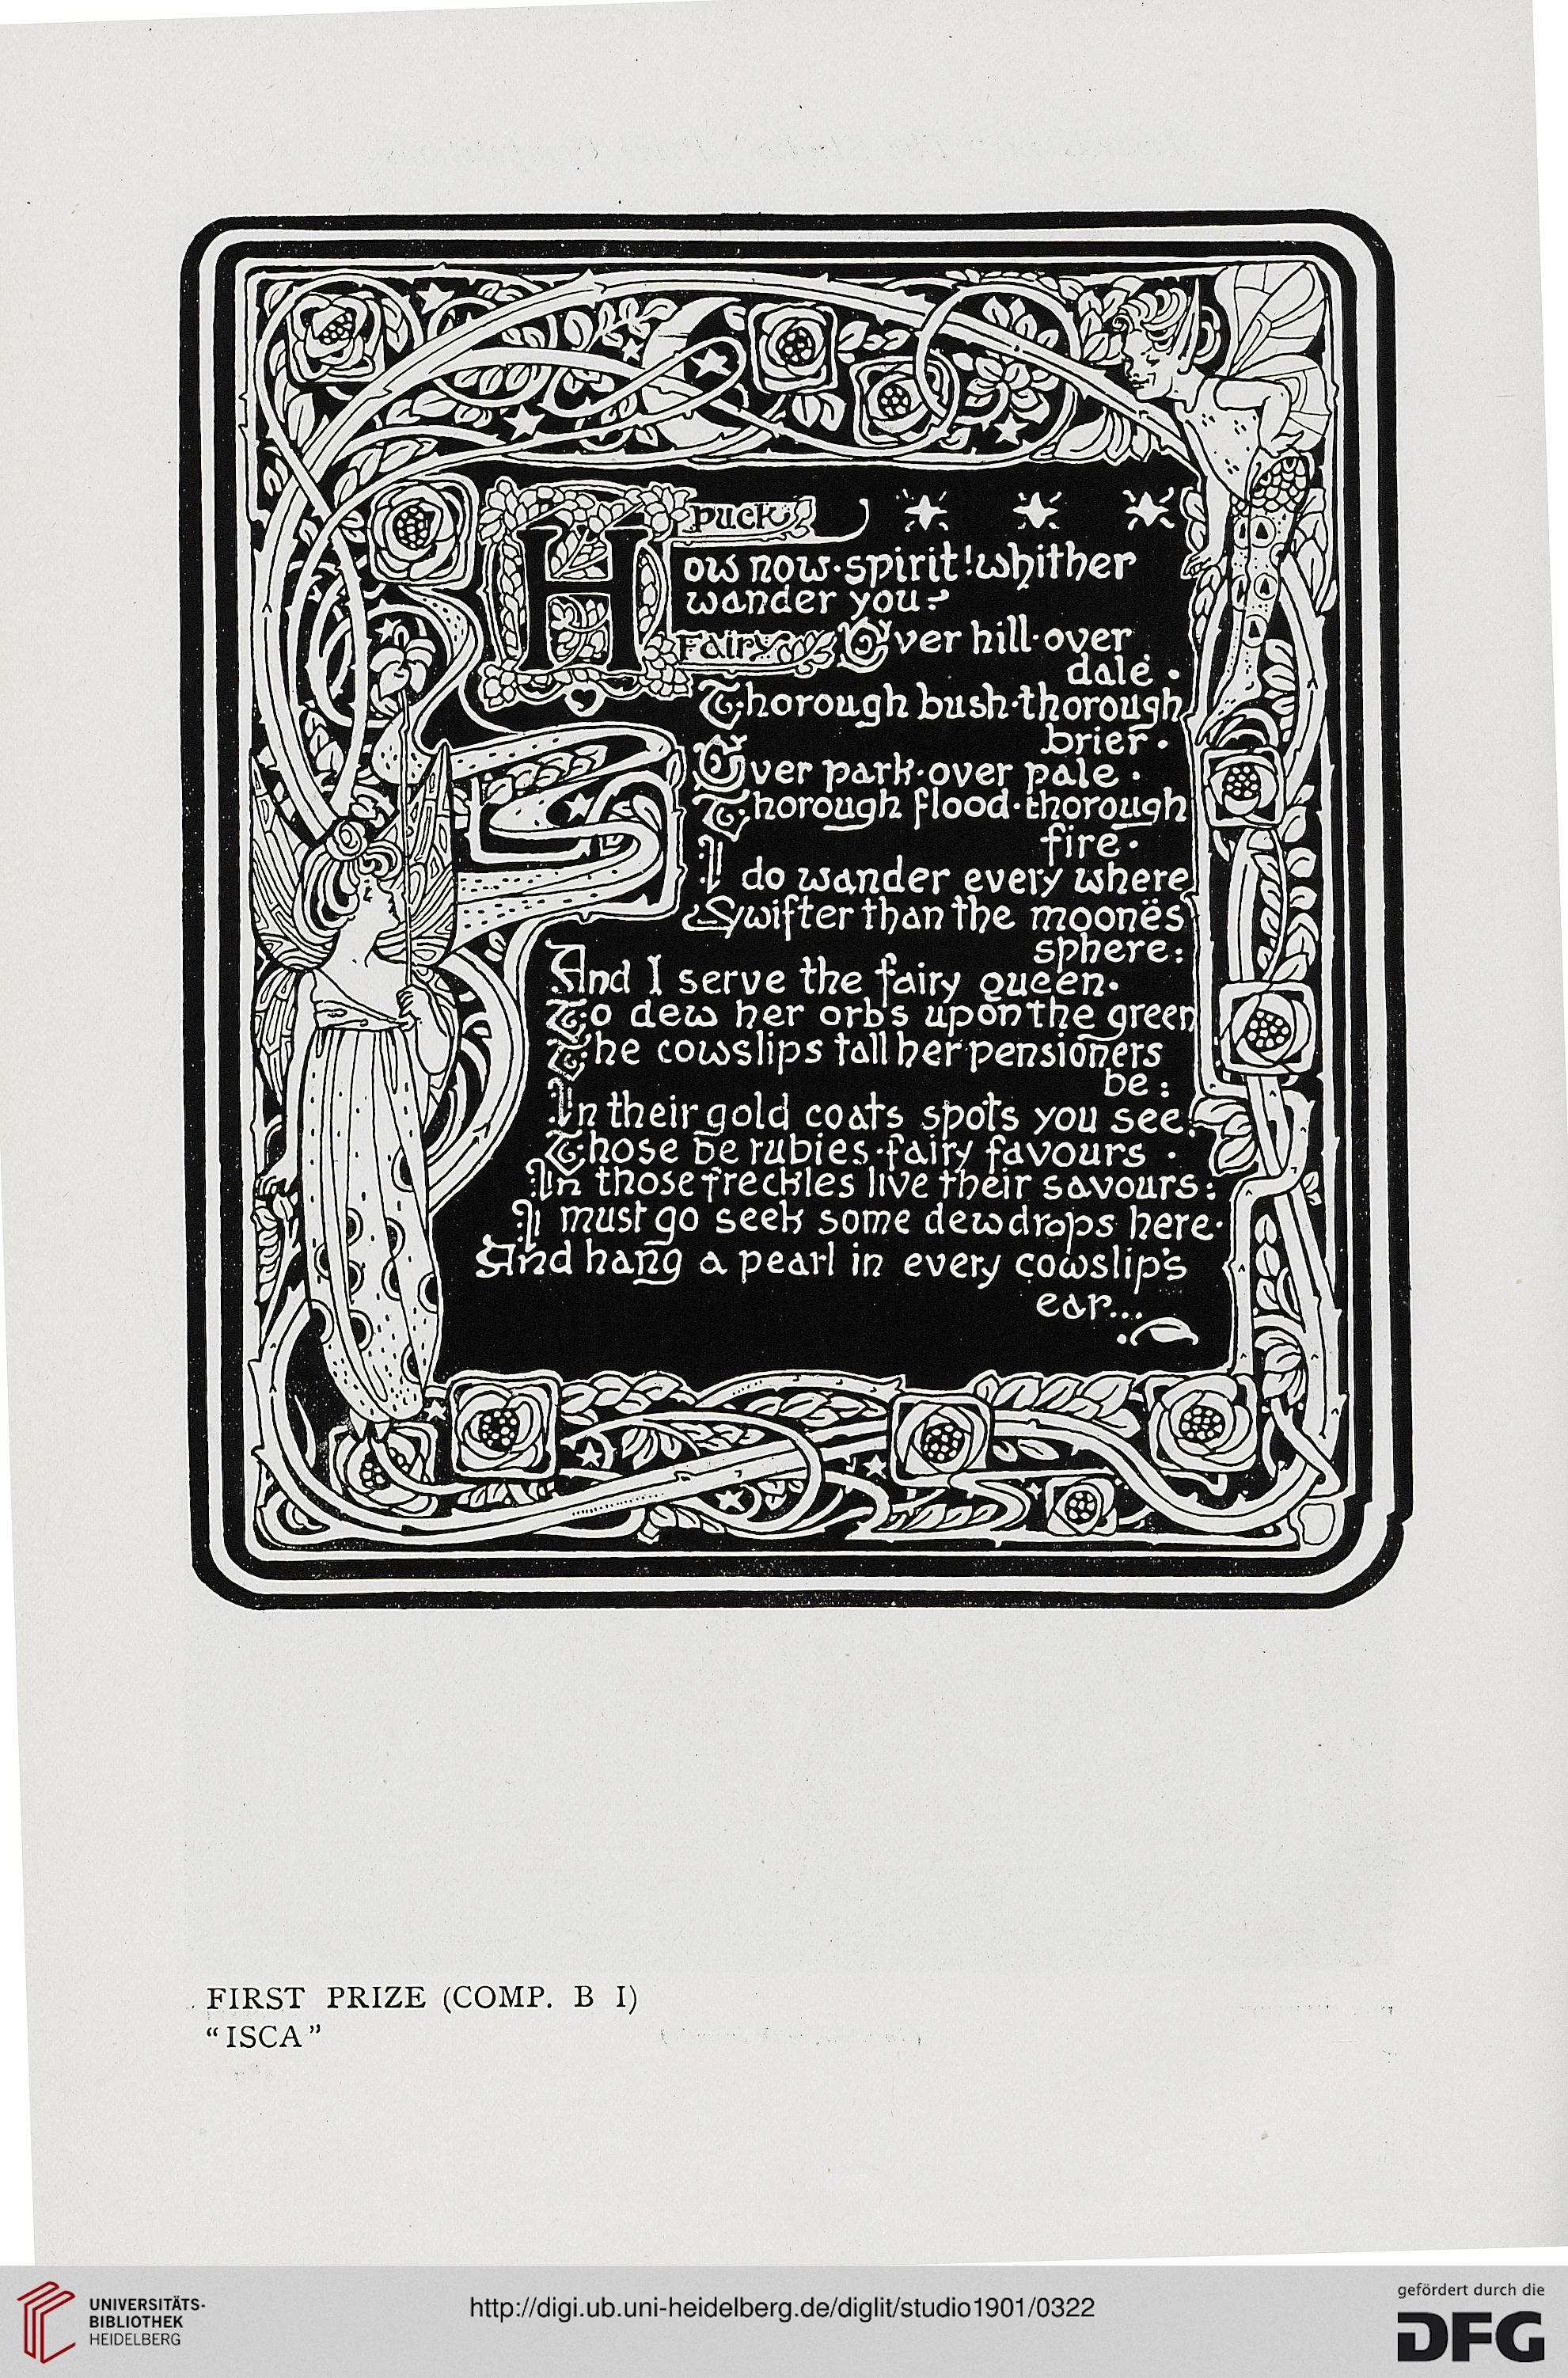 Puck
How now·spirit! whither
wander you?
Fairy Over hill·over
dale·
Thorough bush·thorough
brier·
Over park·over pale·
Thorough flood·thorough
fire·
I do wander every where
Swifter than the moonës
sphere:
And I serve the fairy queen·
To dew her orbs upon the green
The cowslips tall her pensioners
be:
In their gold coats spots you see:
Those be rubies·fairy favours·
In those freckles live their savours:
I must go seek some dewdrops here·
And hang a pearl in every cowslip's
ear...
FIRST PRIZE (COMP. B I)
"ISCA"
UNIVERSITÄTS-
BIBLIOTHEK
HEIDELBERG
http://digi.ub.uni-heidelberg.de/diglit/studio1901/0322
gefördert durch die
DFG